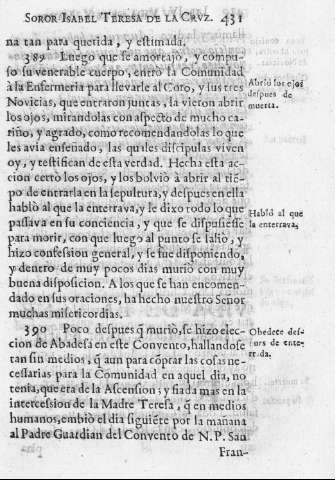 SOROR ISABEL TERESA DE LA CRVZ. 431
na tan para querida, y estimada.
389 Luego que se amortajò, y compu-
so su venerable cuerpo, entrò la Comunidad
à la Enfermeria para llevarle al Coro, y sus tres
Novicias, que entraron juntas, la vieron abrir
los ojos, mirandolas con aspecto de mucho ca-
riño, y agrado, como recomendandolas lo que
les avia enseñado, las quales discipulas viven
oy, y testifican de esta verdad. Hecha esta ac-
cion cerrò los ojos, y los bolviò à abrir al tiẽ-
po de entrarla en la sepultura, y despues en ella
hablò al que la enterrava, y le dixo todo lo que
passava en su conciencia, y que se dispusiesse
para morir, con que luego al punto se saliò, y
hizo confession general, y se fue disponiendo,
y dentro de muy pocos dias muriò con muy
buena disposicion. A los que se han encomen-
dado en sus oraciones, ha hecho nuestro Señor
muchas misericordias.
390 Poco despues q̃ muriò, se hizo elec-
cion de Abadesa en este Convento, hallandose
tan sin medios, q̃ aun para cõprar las cosas ne-
cessarias para la Comunidad en aquel dia, no
tenia, que era de la Ascension; y fiada mas en la
intercession de la Madre Teresa, q̃ en medios
humanos, embiò el dia siguiẽte por la mañana
al Padre Guardian del Convento de N. P. San
Fran-
Abriò sus ojos
despues de
muerta.
Hablò al que
la enterrava.
Obedece des-
pues de ente-
rrada.